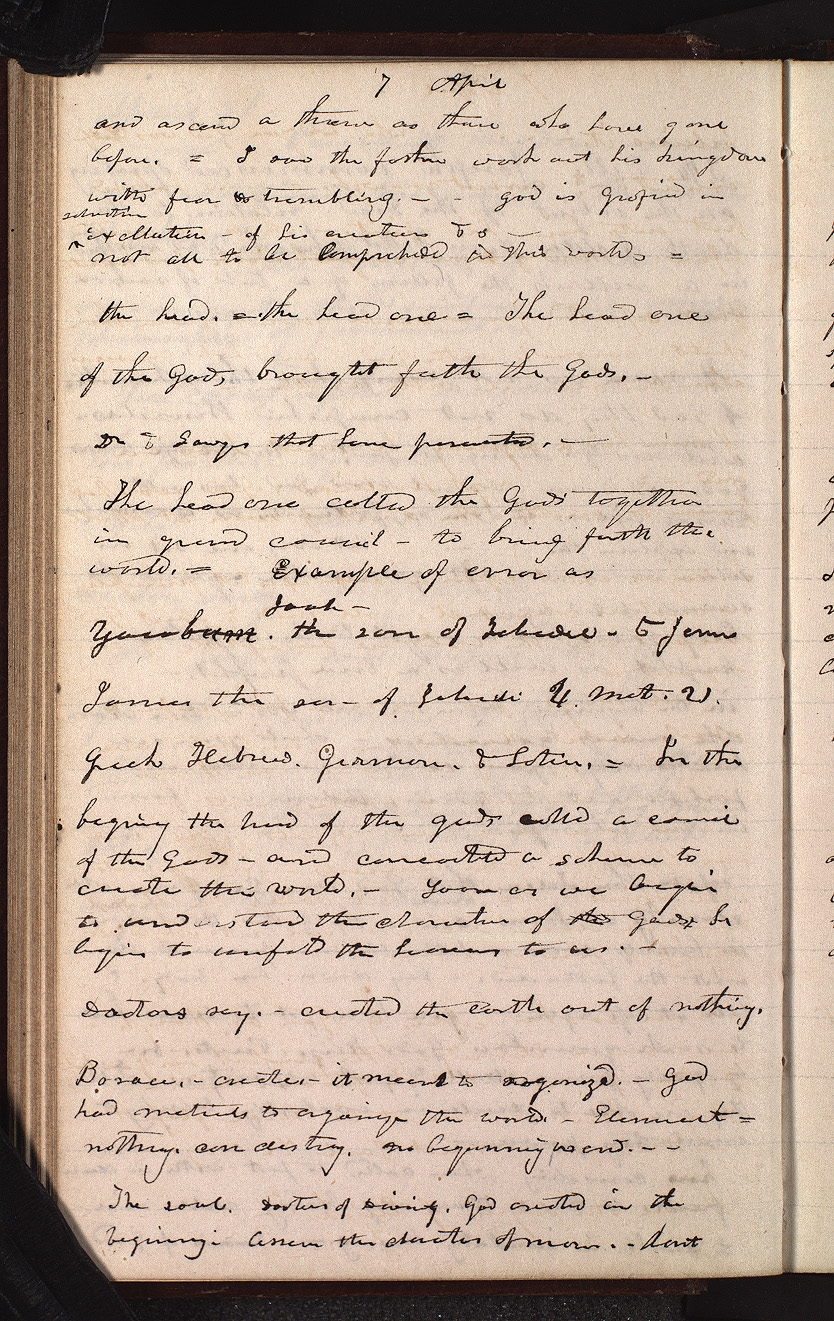 7 April
and ascend a throne as those who have gone
before. = I saw the father work out his kingdom
with fear & trembling. - - god is glofied in
salvation
exaltation - of his creatures &c -
not all to be comprehend in this world =
the head. = the head one = The head one
of the Gods, brought forth the Gods. -
Dr & Lawyrs that have persecuted. -
The head one called the Gods together
in grand council - to bring forth the
world. = Example of error as
Jacob -
. the son of Zebedee. -
James the son - of Zebedi 4. Mat. 21.
Greek Hebrew. German. & Latin. = In the
begining the head of the gods calld a council
of the Gods - and concocted a scheme to
create the world. - Soon as we begin
to understand the character of the Gods he
begins to unfold the heavens to us. -
Doctors say. - created the earth out of nothing.
Borau, - creates - it meant to organized. - God
had materials to organize the world. - Elements =
nothing can destroy. no beginning no end. - -
The soul. Doctors of Divinity. God created in the
beginning. the character of man. - dont